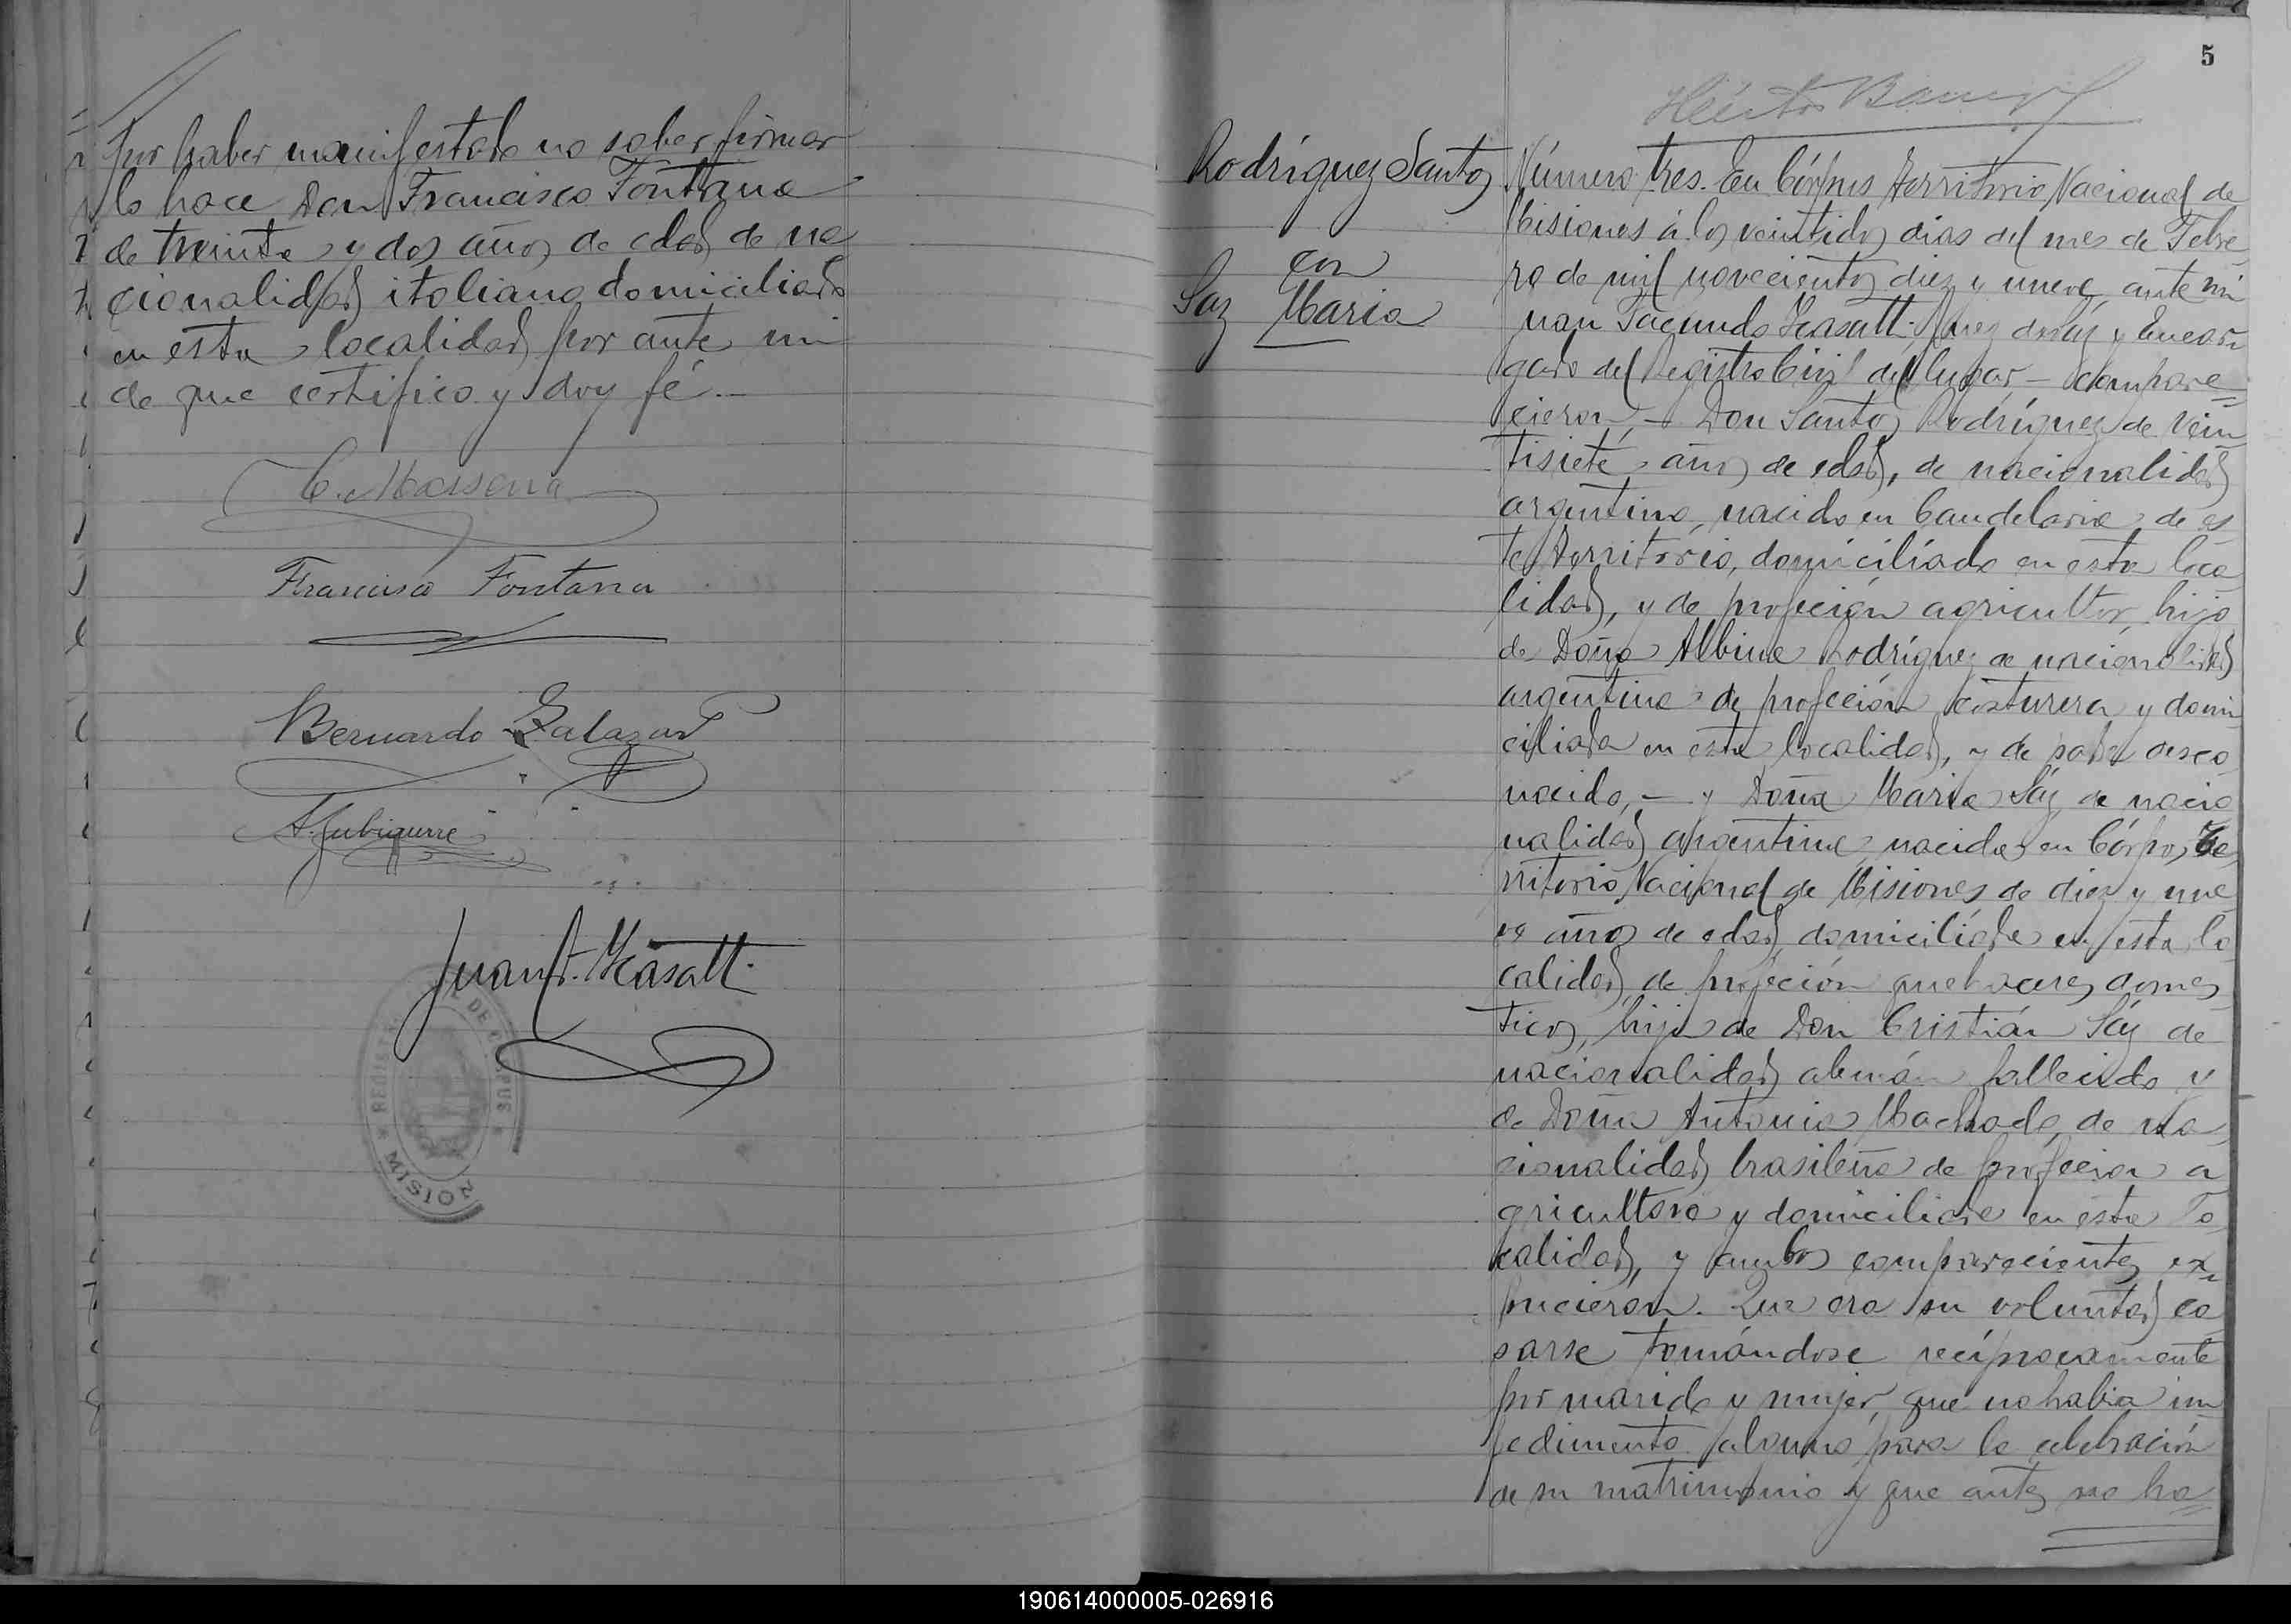 por haber manifestado no saber firmar
lo hace Don Francisco Fontana
de treinta y dos años de edad de na
cionalidad italiana domiciliado
en esta localidad por ante mi
de que certifico y doy fé.—
C. Massena
Francisco Fontana
Bernardo Salazar
Juan F.
REGISTRO DE CORPUS
MISION
5
Héctor
Rodríguez Santos
con
Saz Maria
Número tres. En Córpus territorio Nacional de
Misiones á los veintidos dias del mes de Febre
ro de mil novecientos diez y nueve, ante mi
Juan Facundo Juez de Paz y Encar
gado del Registro Civil del lugar — compare
cieron, — Don Santos Rodríguez de vein
tisiete años de edad, de nacionalidad
argentino, nacido en Candelaria de es
te territorio, domiciliado en esta loca
lidad, y de profeción agricultor, hijo
de Doña Albina Rodríguez de nacionalidad
argentina de profeción costurera y domi
ciliada en esta localidad, y de padre desco
nocido, — y Doña Maria Sáz de nacio
nalidad argentina nacida en Córpus, Te
rritorio Nacional de Misiones de diez y nue
ve años de edad, domiciliada en esta lo
calidad, de profeción quehaceres domes
ticos, hija de Don Cristián Sáz de
nacionalidad alemán fallecido y
de Doña Antonia Machado, de na
cionalidad brasileña de profecion a
gricultora y domiciliada en esta lo
calidad, y ambos comparecientes ex
pucieron. Que era su voluntad ca
sarse tomándose recíprocamente
por marido y mujer, que no habia im
pedimento alguno para la celebración
de su matrimonio y que antes no ha
190614000005-026916